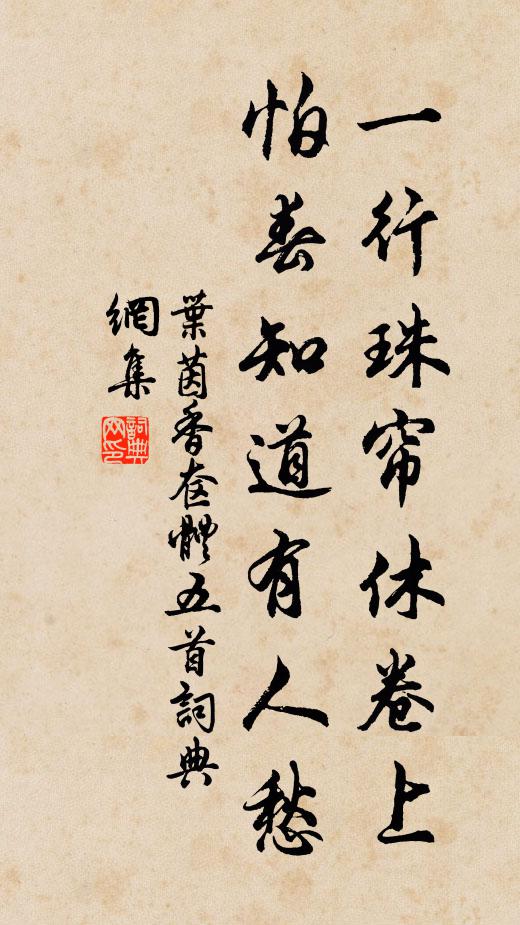 一行珠帘休卷上
怕春知道有人愁
葉茵香奩體五首詞典
網集
詞典網印